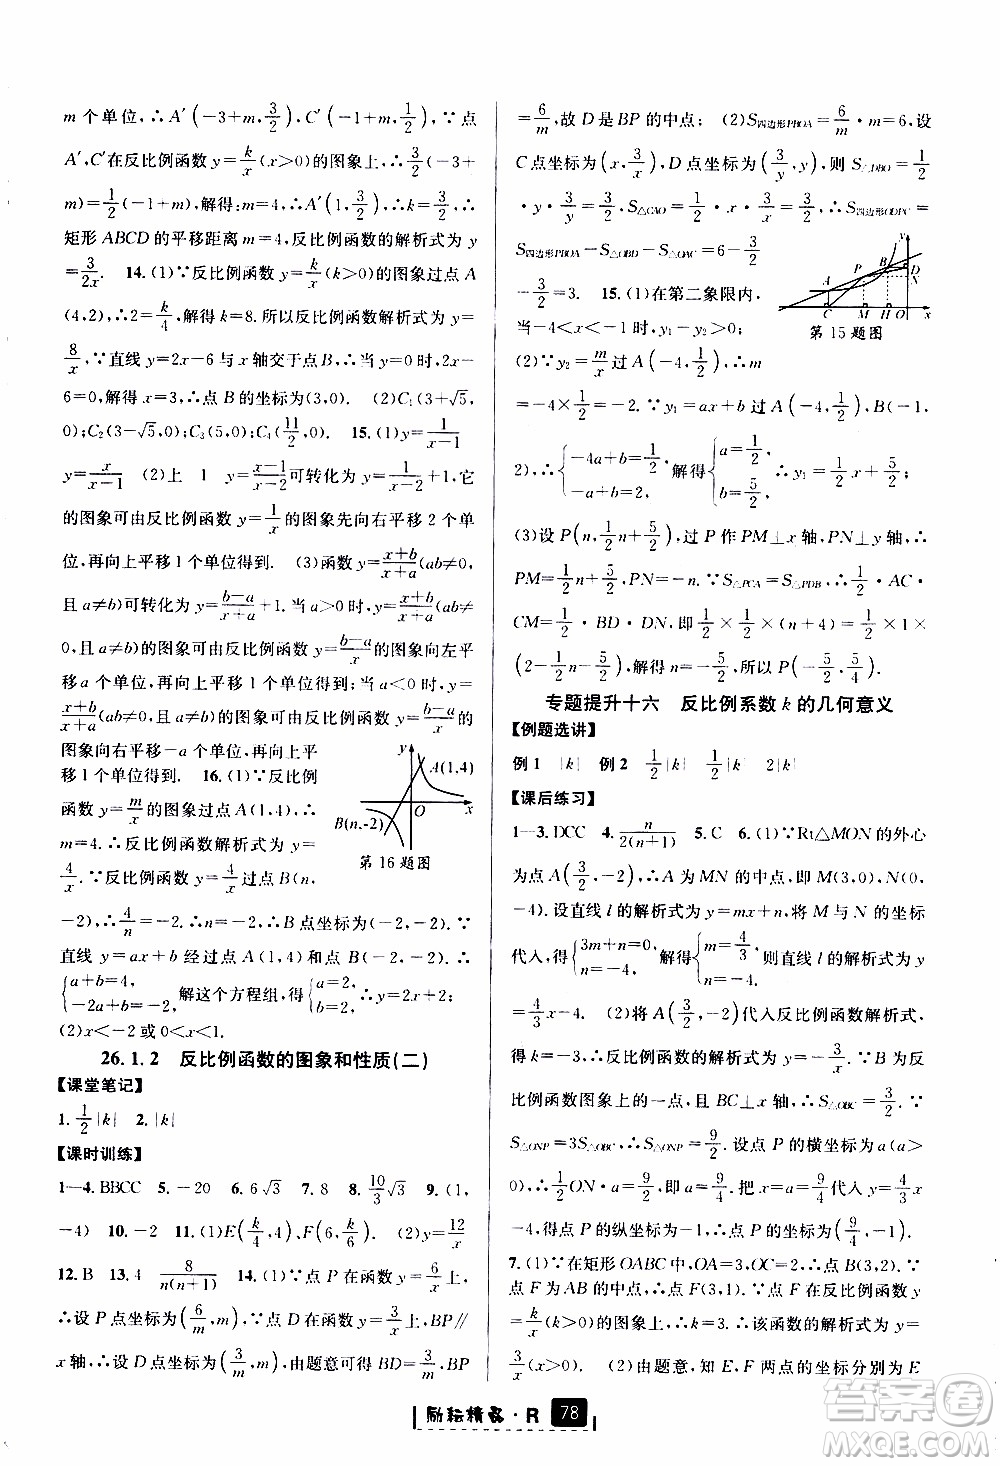 m 个单位,∴A′(−3+m,3/2),C′(−1+m,3/2),∵点
A′,C′在反比例函数 y=k/x(x>0)的图象上,∴3/2(−3+
m)=1/2(−1+m),解得:m=4,∴A′(1,3/2),∴k=3/2,∴
矩形 ABCD 的平移距离 m=4,反比例函数的解析式为 y
=3/2x. 14.(1)∵反比例函数 y=k/x(k>0)的图象过点 A
(4,2),∴2=k/4,解得 k=8.所以反比例函数解析式为 y=
8/x.∵直线 y=2x−6 与 x 轴交于点 B,∴当 y=0 时,2x−
6=0,解得 x=3,∴点 B 的坐标为(3,0). (2)C₁(3+√5,
0);C₂(3−√5,0);C₃(5,0);C₄(11/2,0) 15.(1)y=1/(x−1)
y=x/(x−1) (2)上 1 y=(x−1)/(x−2)可转化为 y=1/(x−2)+1,它
的图象可由反比例函数 y=1/x的图象先向右平移 2 个单
位,再向上平移 1 个单位得到. (3)函数 y=(x+b)/(x+a)(ab≠0,
且 a≠b)可转化为 y=(b−a)/(x+a)+1.当 a>0 时,y=(x+b)/(x+a)(ab≠
0,且 a≠b)的图象可由反比例函数 y=(b−a)/x的图象向左平
移 a 个单位,再向上平移 1 个单位得到;当 a<0 时,y=
(x+b)/(x+a)(ab≠0,且 a≠b)的图象可由反比例函数 y=(b−a)/x的
图象向右平移−a 个单位,再向上平移
1 个单位得到. 16.(1)∵反比例
函数 y=m/x的图象过点 A(1,4),∴
m=4.∴反比例函数的解析式为 y=
4/x.∵反比例函数 y=4/x过点 B(n,
−2),∴4/n=−2,∴n=−2,∴B 点坐标为(−2,−2).∵
直线 y=ax+b 经过点 A(1,4)和点 B(−2,−2),∴
{a+b=4, −2a+b=−2,解这个方程组,得{a=2, b=2,∴y=2x+2;
(2)x<−2 或 0<x<1.
y
A(1,4)
O
x
B(n,-2)
第 16 题图
26.1.2 反比例函数的图象和性质(二)
【课堂笔记】
1. 1/2|k| 2. |k|
【课时训练】
1—4.BBCC 5.−20 6.6√3 7.8 8.10/3√3 9.(1,
−4) 10.−2 11.(1)E(k/4,4),F(6,k/6) (2)y=12/x
12.B 13.4 8/n(n+1) 14.(1)∵点 P 在函数 y=6/x上,
∴设 P 点坐标为(6/m,m),∵点 D 在函数 y=3/x上,BP∥
x 轴,∴设 D 点坐标为(3/m,m),由题意可得 BD=3/m,BP
=6/m,故 D 是 BP 的中点; (2)S四边形PBOA=6/m·m=6,设
C 点坐标为(x,3/x),D 点坐标为(3/y,y),则 S△DBO=1/2
·y·3/y=3/2,S△CAO=1/2·x·3/x=3/2,S四边形ODPC=
S四边形PBOA−S△OBD−S△OAC=6−3/2
−3/2=3. 15.(1)在第二象限内,
当−4<x<−1 时,y₁−y₂>0;
(2)∵y₂=m/x过 A(−4,1/2),∴m
=−4×1/2=−2.∵y₁=ax+b 过 A(−4,1/2),B(−1,
2),∴{−4a+b=1/2, −a+b=2,解得{a=1/2, b=5/2,∴y₁=1/2x+5/2;
(3)设 P(n,1/2n+5/2),过 P 作 PM⊥x 轴,PN⊥y 轴,∴
PM=1/2n+5/2,PN=−n.∵S△PCA=S△PDB,∴1/2·AC·
CM=1/2·BD·DN,即1/2×1/2×(n+4)=1/2×1×
(2−1/2n−5/2),解得 n=−5/2,所以 P(−5/2,5/4).
y
A P B D N
C M H O x
第 15 题图
专题提升十六 反比例系数 k 的几何意义
【例题选讲】
例 1 |k| 例 2 1/2|k| 1/2|k| 2|k|
【课后练习】
1—3.DCC 4.n/2(n+1) 5.C 6.(1)∵Rt△MON 的外心
为点 A(3/2,−2),∴A 为 MN 的中点,即 M(3,0),N(0,
−4).设直线 l 的解析式为 y=mx+n,将 M 与 N 的坐标
代入,得{3m+n=0, n=−4,解得{m=4/3, n=−4,则直线 l 的解析式为 y=
4/3x−4; (2)将 A(3/2,−2)代入反比例函数解析式,
得 k=−3,∴反比例函数的解析式为 y=−3/x,∵B 为反
比例函数图象上的一点,且 BC⊥x 轴,∴S△OBC=3/2,∵
S△ONP=3S△OBC,∴S△ONP=9/2.设点 P 的横坐标为 a(a>
0),∴1/2ON·a=9/2,即 a=9/4.把 x=9/4代入 y=4/3x
−4,得点 P 的纵坐标为−1,则点 P 的坐标为(9/4,−1).
7.(1)∵在矩形 OABC 中,OA=3,OC=2,∴B(3,2).∵
点 F 为 AB 的中点,∴点 F(3,1).∵点 F 在反比例函数 y=
k/x(k>0)的图象上,∴k=3.∴该函数的解析式为 y=
3/x(x>0). (2)由题意,知 E,F 两点的坐标分别为 E
励耘精品·R 78
答案圈
MXQE.COM